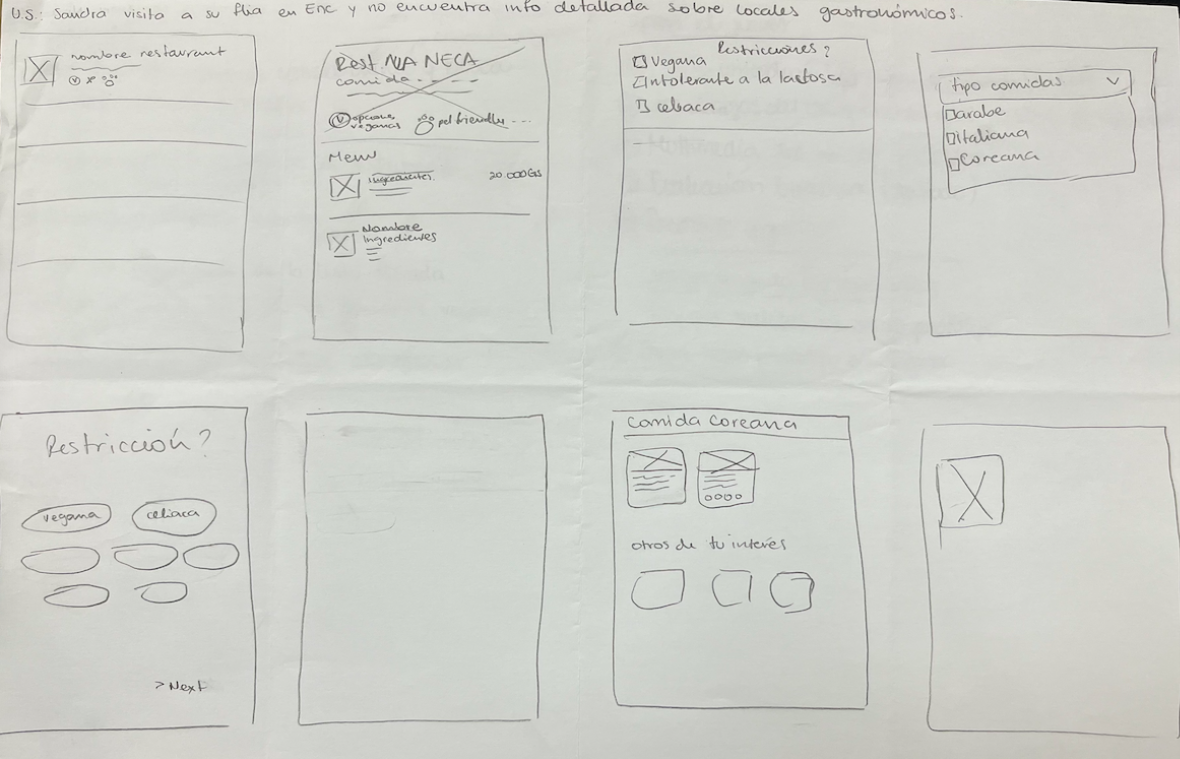 US: Sandra visita a su flia en Enc y no encuentra info detallada sobre locales gastronómicos.
nombre restaurant
V
Rest ÑA NECA
comida
V opciones veganas
pet friendly ...
Menu
Ingredientes
20.000Gs
Nombre
Ingredientes
Restricciones?
Vegana
Intolerante a la lactosa
celiaca
tipo comidas
arabe
italiana
Coreana
Restricción?
vegana
celiaca
> Next
Comida Coreana
otros de tu interés